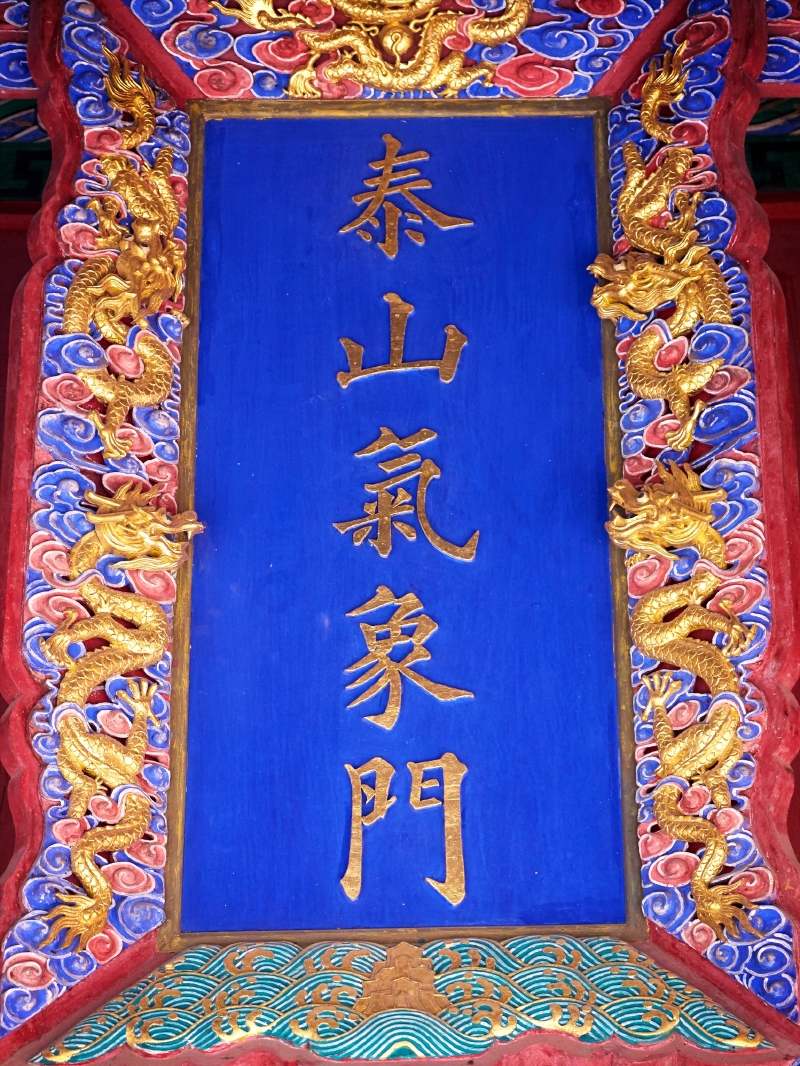 泰山氣象門